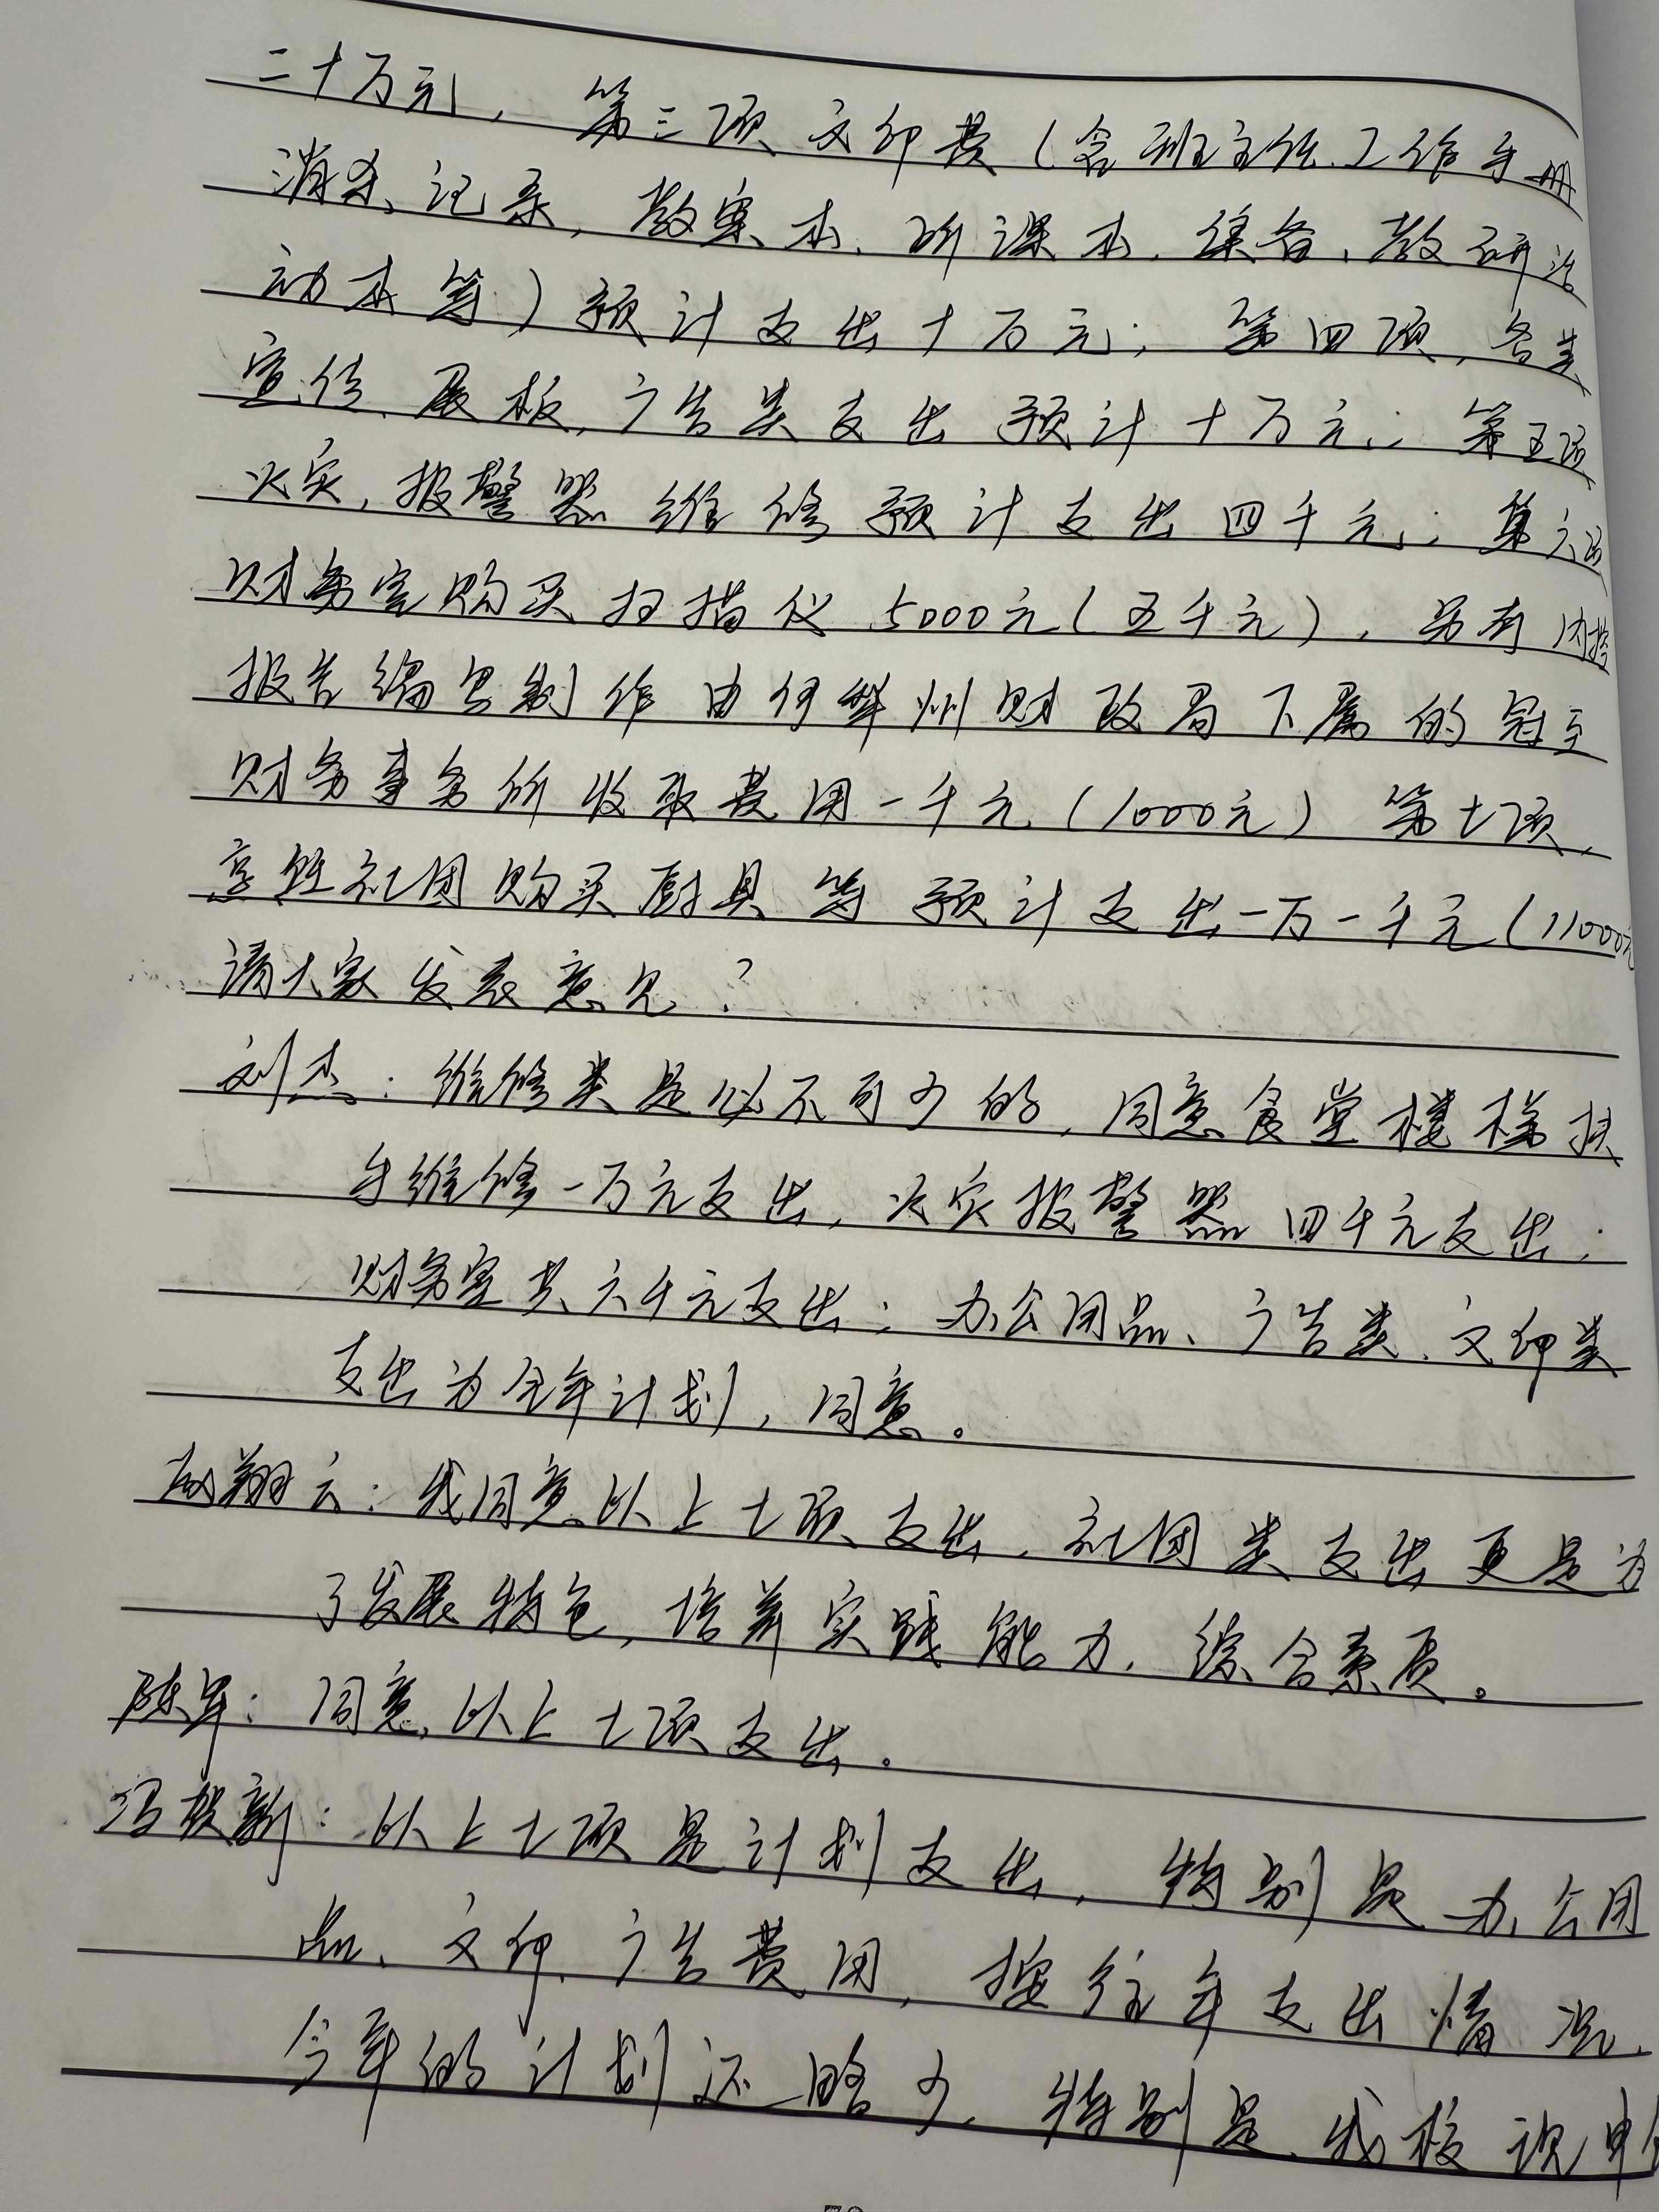 二十万元，第三项文印费（含班主任工作手册
消杀、记录，教案本、听课本、集备、教研活
动本等）预计支出十万元；第四项，各类
宣传、展板，广告类支出预计十万元；第五项
火灾，报警器维修预计支出四千元；第六项
财务室购买扫描仪5000元（五千元），另有内控
报告编写制作由何华州财政局下属的冠至
财务事务所收取费用一千元（1000元）第七项，
烹饪社团购买厨具等预计支出一万一千元（11000元
请大家发表意见？
刘杰：维修类是必不可少的，同意食堂楼梯扶
手维修一万元支出，火灾报警器四千元支出；
财务室共六千元支出；办公用品、广告类、文印类
支出为全年计划，同意。
翔云：我同意以上七项支出，社团类支出更是为
了发展特色，培养实践能力，综合素质。
陈军：同意以上七项支出。
冯毅新：以上七项是计划支出，特别是办公用
品、文印、广告费用，按往年支出情况，
今年的计划还略少，特别是我校现申